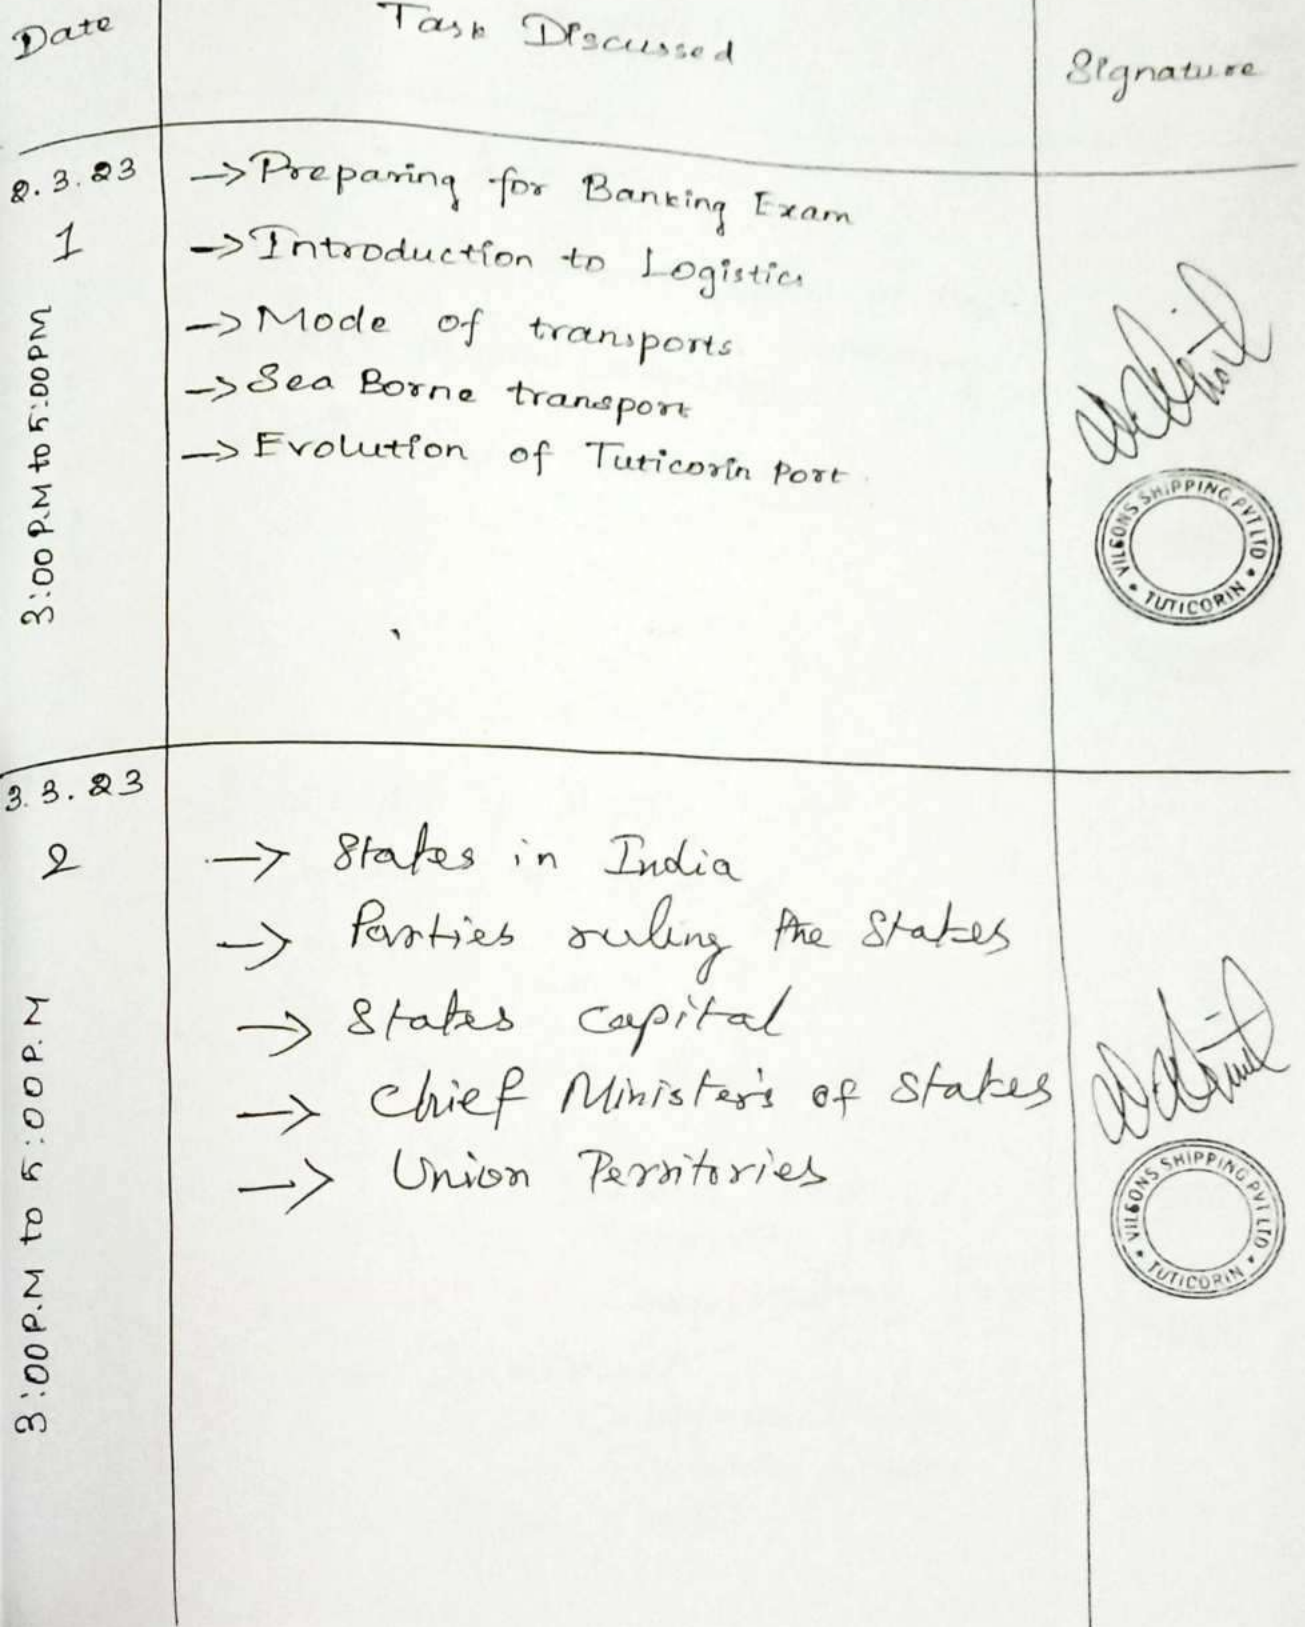 Date
Task Discussed
Signature
2.3.23
1
3:00 P.M to 5:00PM
->Preparing for Banking Exam
->Introduction to Logistics
->Mode of transports
->Sea Borne transport
->Evolution of Tuticorin Port
VILSONS SHIPPING PVT LTD
TUTICORIN
3.3.23
2
3:00P.M to 5:00P.M
-> States in India
-> Parties ruling the States
-> States capital
-> Chief Minister's of States
-> Union Territories
VILSONS SHIPPING PVT LTD
TUTICORIN